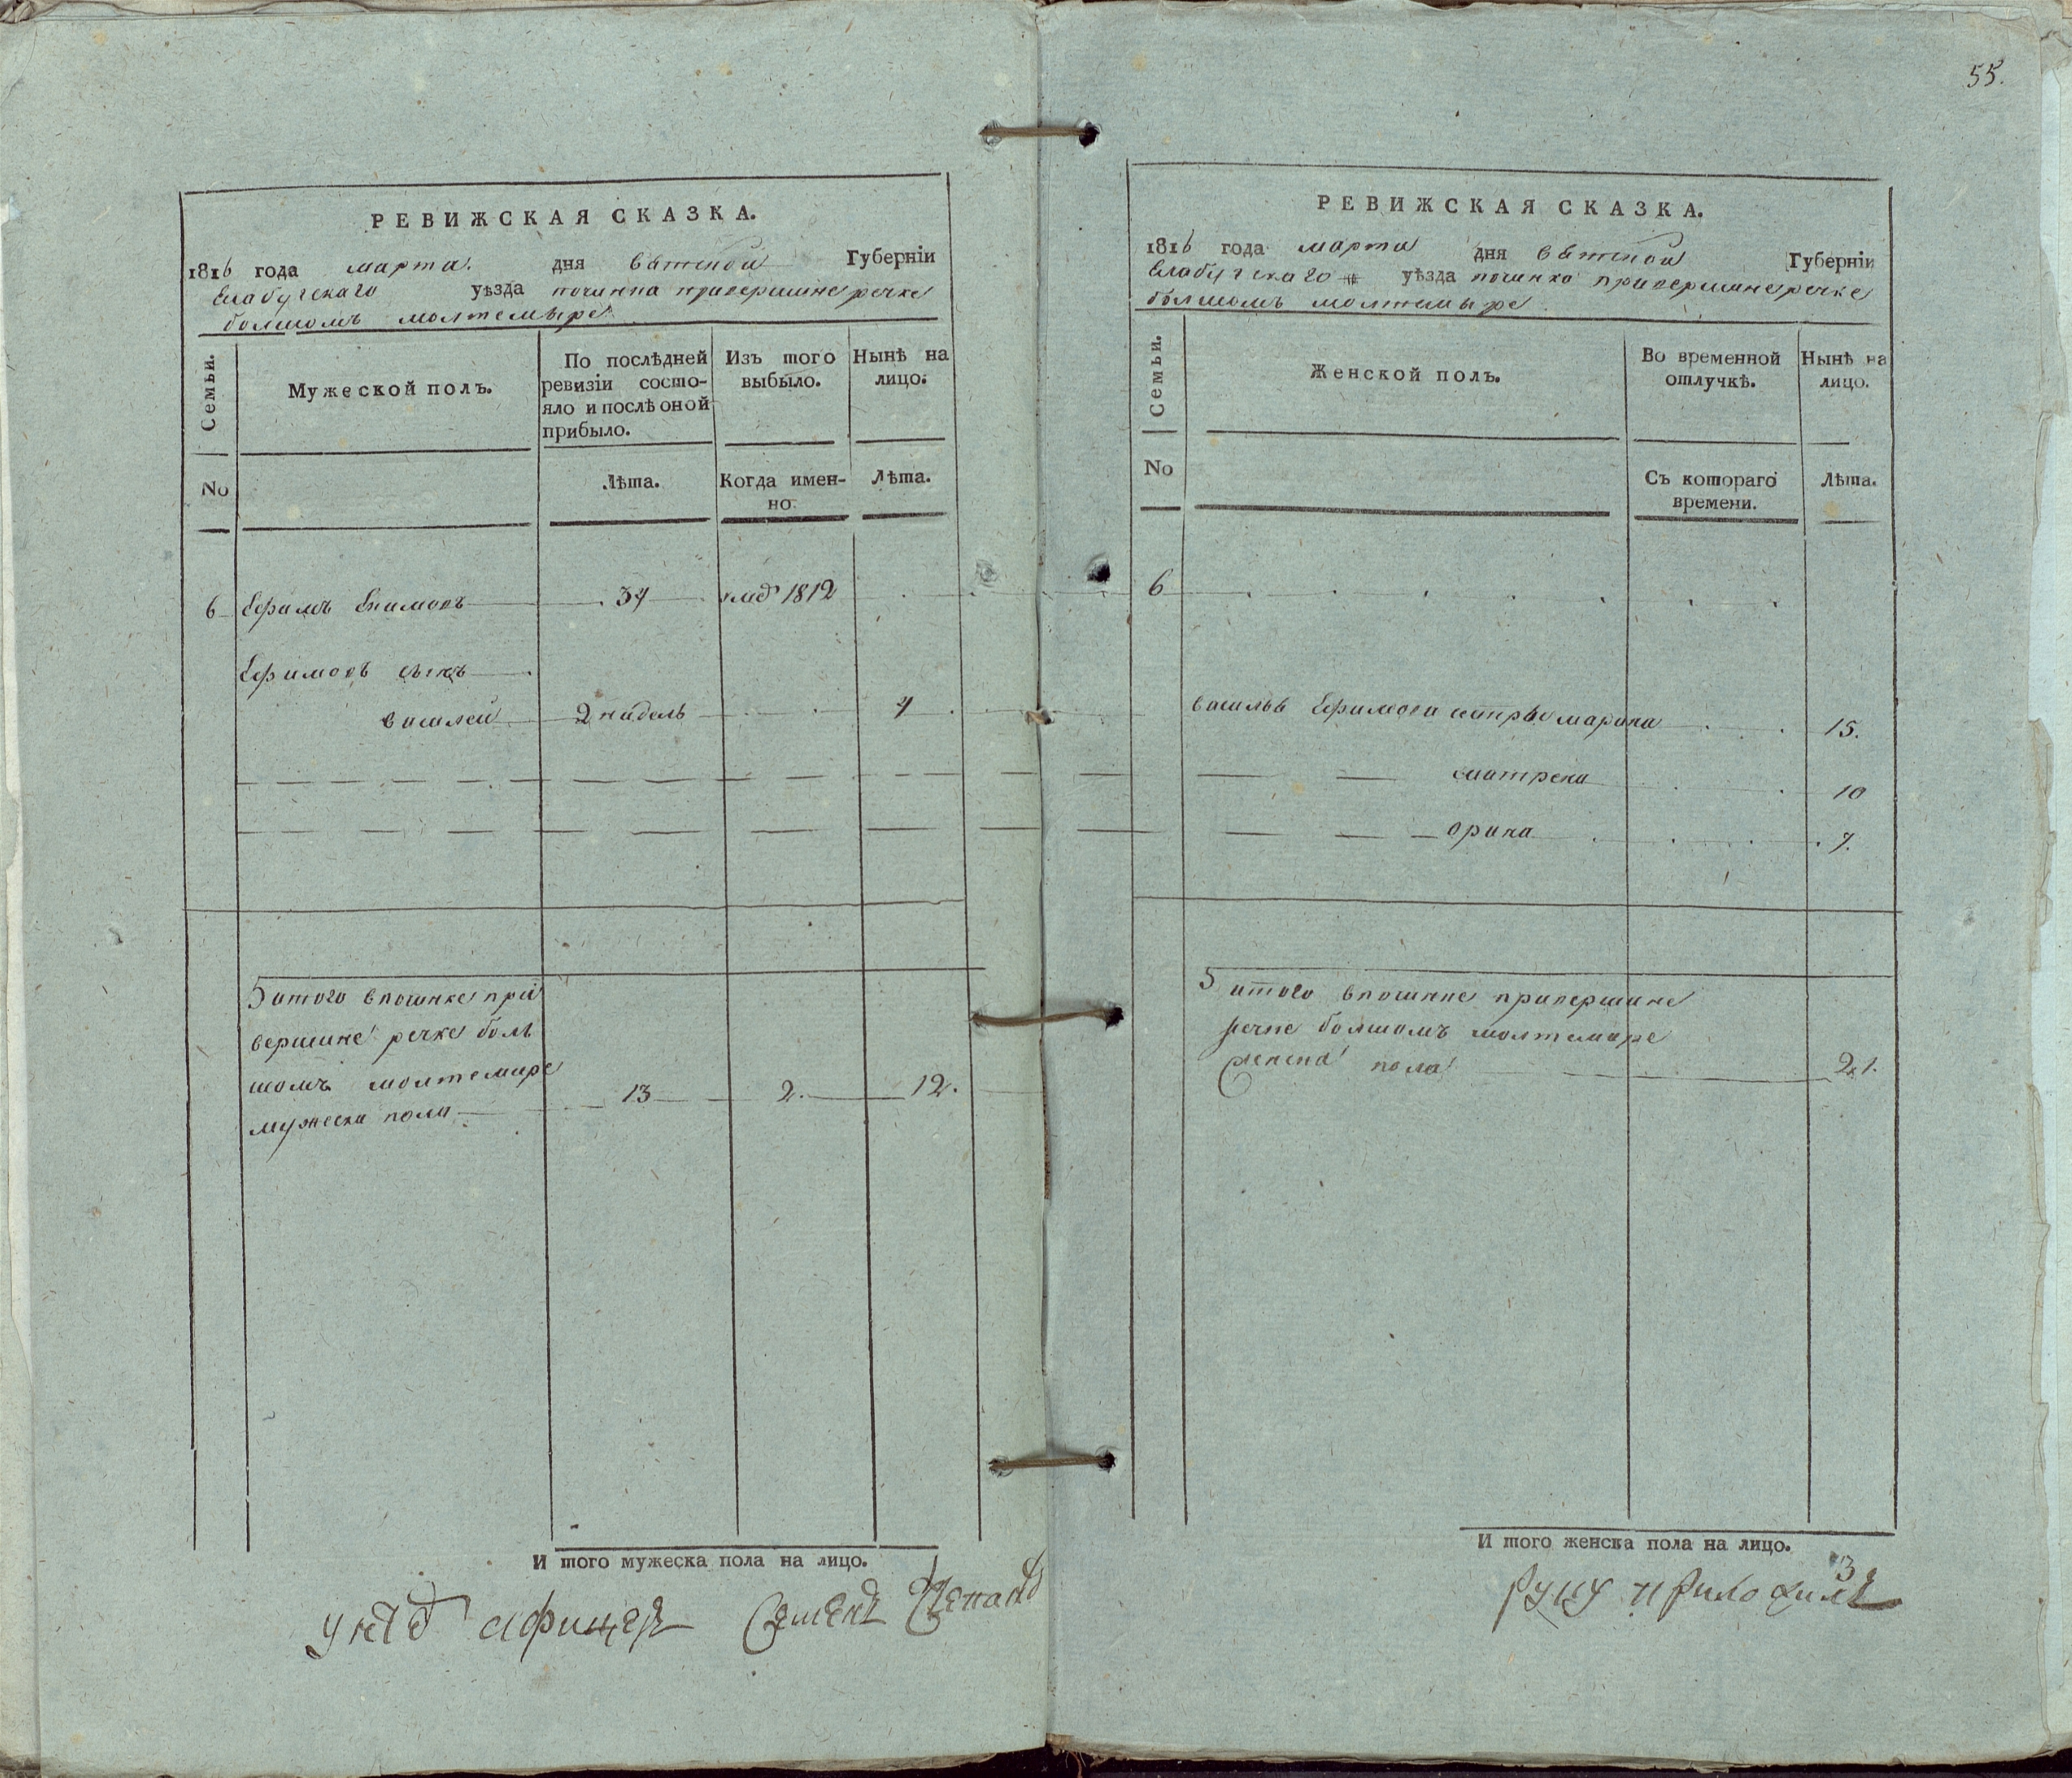 55.
РЕВИЖСКАЯ СКАЗКА.
1816 года марта. дня вятской Губерніи
Елабугскаго уѣзда починка привершине речке
болшомъ молтемыре
Семьи.
Мужеской полъ.
По послѣдней ревизіи состо-
яло и послѣ оной
прибыло.
Изъ того
выбыло.
Нынѣ на
лицо.
No
Лѣта.
Когда имен-
но.
Лѣта.
6 Ефимъ 34 1812
Ефимовъ сынъ
василей 2 недель 4
5 итого впочинке при
вершине речке боль
шомъ молтемире
мужеска пола 13 2. 12.
И того мужеска пола на лицо.
Семенъ
РЕВИЖСКАЯ СКАЗКА.
1816 года марта дня вятской Губерніи
Елабугскаго уѣзда починка привершине речке
болшомъ молтемыре
Семьи.
Женской полъ.
Во временной
отлучкѣ.
Нынѣ на
лицо.
No
Съ котораго
времени.
Лѣта.
6
василья Ефимова сестры марина 15.
матрена 10
орина 7.
5 итого впочинке привершине
речке болшомъ молтемире
женска пола 21.
И того женска пола на лицо.
руку приложилъ